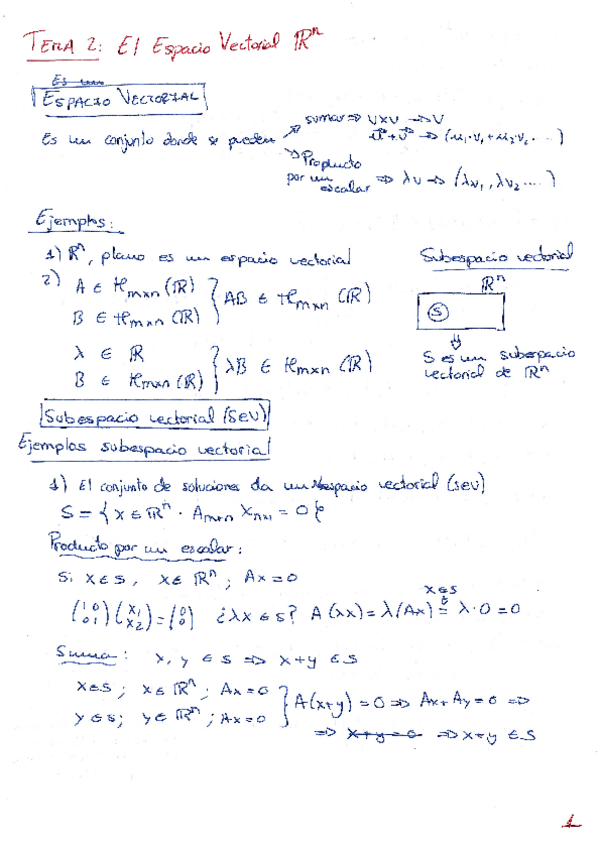 TEMA 2: El Espacio Vectorial ℝⁿ
Es un
ESPACIO VECTORIAL
Es un conjunto donde se pueden
sumar ⇒ V×V → V
u⃗ + v⃗ → (u₁·v₁ + u₂·v₂ ....)
Producto por un escalar ⇒ λv → (λv₁, λv₂ ....)
Ejemplos:
1) ℝⁿ, plano es un espacio vectorial
2) A ∈ ℳmxn (ℝ)
B ∈ ℳmxn (ℝ)
} AB ∈ ℳmxn (ℝ)
λ ∈ ℝ
B ∈ ℳmxn (ℝ)
} λB ∈ ℳmxn (ℝ)
Subespacio vectorial
ℝⁿ
S
⇓
S es un subespacio
vectorial de ℝⁿ
Subespacio vectorial (SeV)
Ejemplos subespacio vectorial
1) El conjunto de soluciones da un subespacio vectorial (sev)
S = { x ∈ ℝⁿ · Amxn Xnx1 = 0 }
Producto por un escalar:
Si x ∈ S, x ∈ ℝⁿ ; Ax = 0
(1 0 / 0 1) (x₁ / x₂) = (0 / 0) ¿λx ∈ S? A(λx) = λ(Ax) = λ·0 = 0
x∈S
Suma: x, y ∈ S ⇒ x+y ∈ S
x∈S; x∈ℝⁿ; Ax=0
y∈S; y∈ℝⁿ; Ax=0
} A(x+y) = 0 ⇒ Ax + Ay = 0 ⇒
⇒ x+y=0 ⇒ x+y ∈ S
1